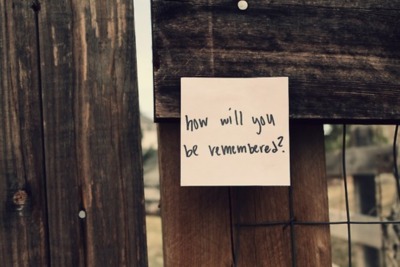 how will you
be remembered?